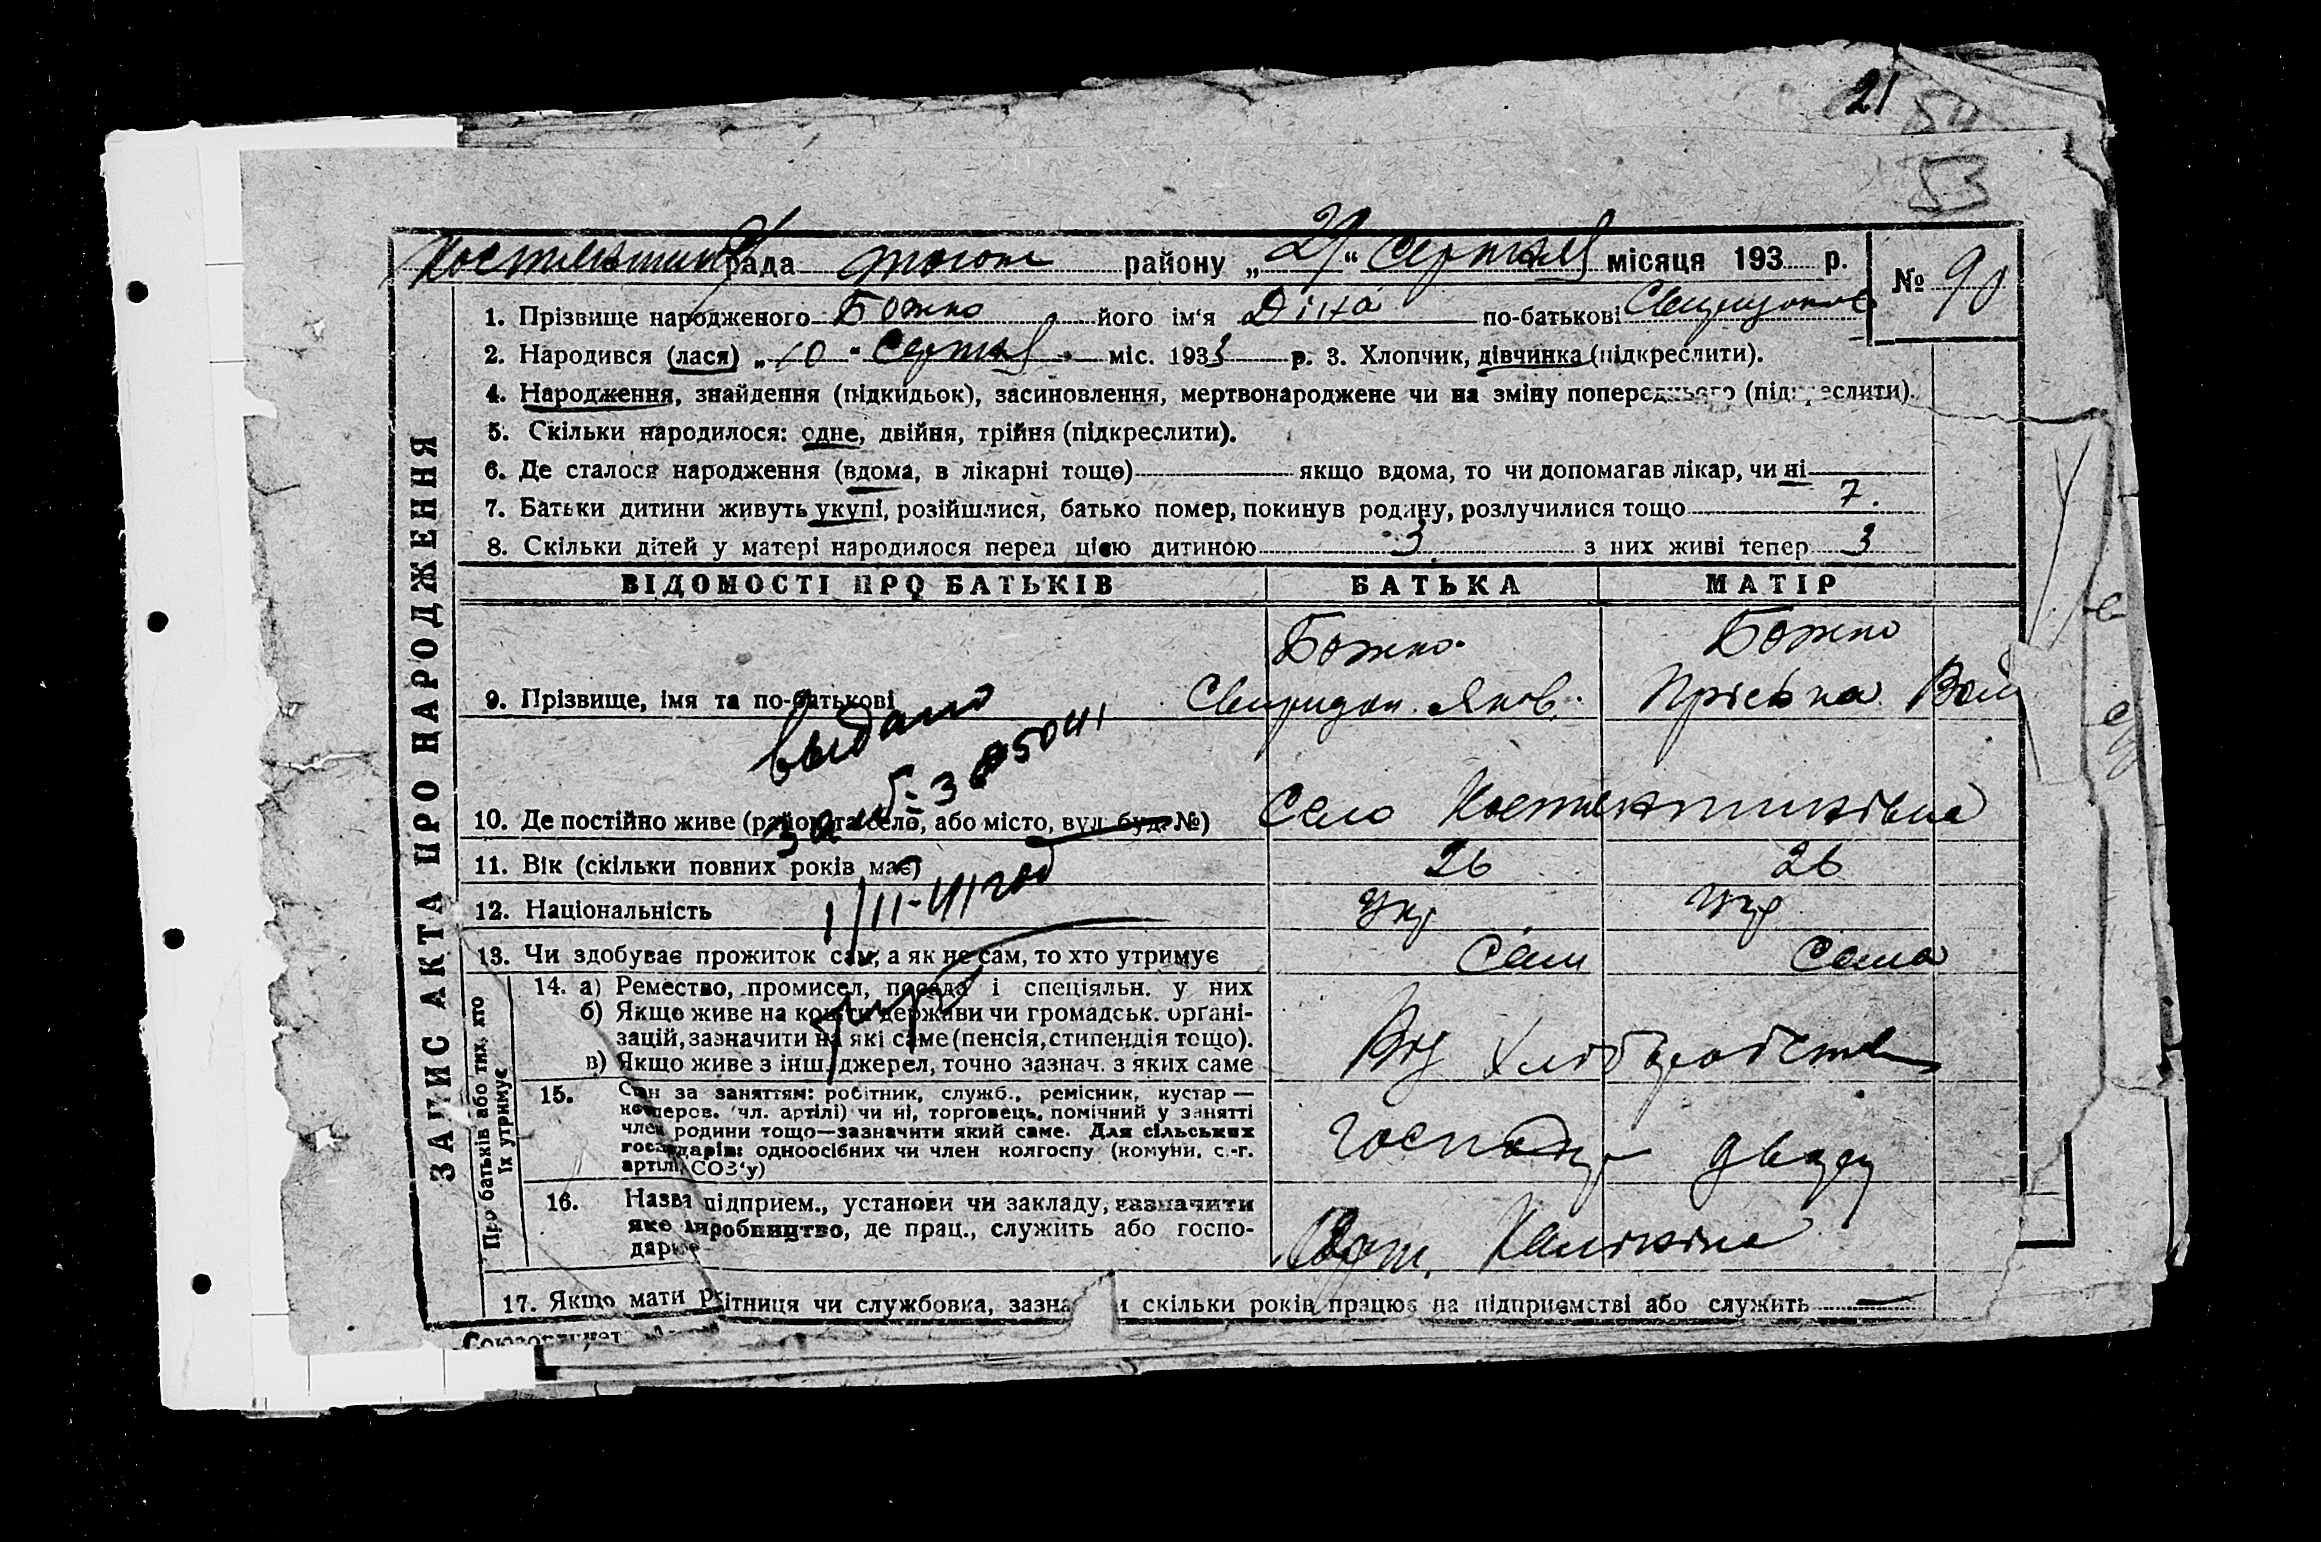 21
54
53
рада району „29“ Серпня місяця 193 р. № 90
ЗАПИС АКТА ПРО НАРОДЖЕННЯ
1. Прізвище народженого Божко його ім‘я Діна по-батькові
2. Народився (лася) „10“ Серпня міс. 1933 р. 3. Хлопчик, дівчинка (підкреслити).
4. Народження, знайдення (підкидьок), засиновлення, мертвонароджене чи на зміну попереднього (підкреслити).
5. Скільки народилося: одне, двійня, трійня (підкреслити).
6. Де сталося народження (вдома, в лікарні тощо) якщо вдома, то чи допомагав лікар, чи ні
7. Батьки дитини живуть укупі, розійшлися, батько помер, покинув родину, розлучилися тощо 7.
8. Скільки дітей у матері народилося перед цією дитиною 3 з них живі тепер 3
ВІДОМОСТІ ПРО БАТЬКІВ БАТЬКА МАТІР
Божко Божко
9. Прізвище, імя та по-батькові Свиридон Яков. Пріська
выдано
10. Де постійно живе (район та село, або місто, вул. буд. №) Село
11. Вік (скільки повних років має) 26 26
12. Національність Укр Укр
13. Чи здобуває прожиток сам, а як не сам, то хто утримує Сам Сама
Про батьків або тих, хто їх утримує
14. а) Ремество, промисел, посада і спеціяльн. у них
б) Якщо живе на кошти держави чи громадськ. органі-
зацій, зазначити на які саме (пенсія, стипендія тощо).
в) Якщо живе з інш. джерел, точно зазнач. з яких саме
15. Стан за заняттям: робітник, служб., ремісник, кустар —
коперов. чл. артілі) чи ні, торговець, помічний у занятті
член родини тощо—зазначити який саме. Для сільських
господарів: одноосібних чи член колгоспу (комуни, с.-г.
артілі, СОЗ‘у)
16. Назва підприєм., установи чи закладу, зазначити
яке виробництво, де прац., служить або госпо-
дарює
17. Якщо мати робітниця чи службовка, зазначити скільки років працює на підприємстві або служить —